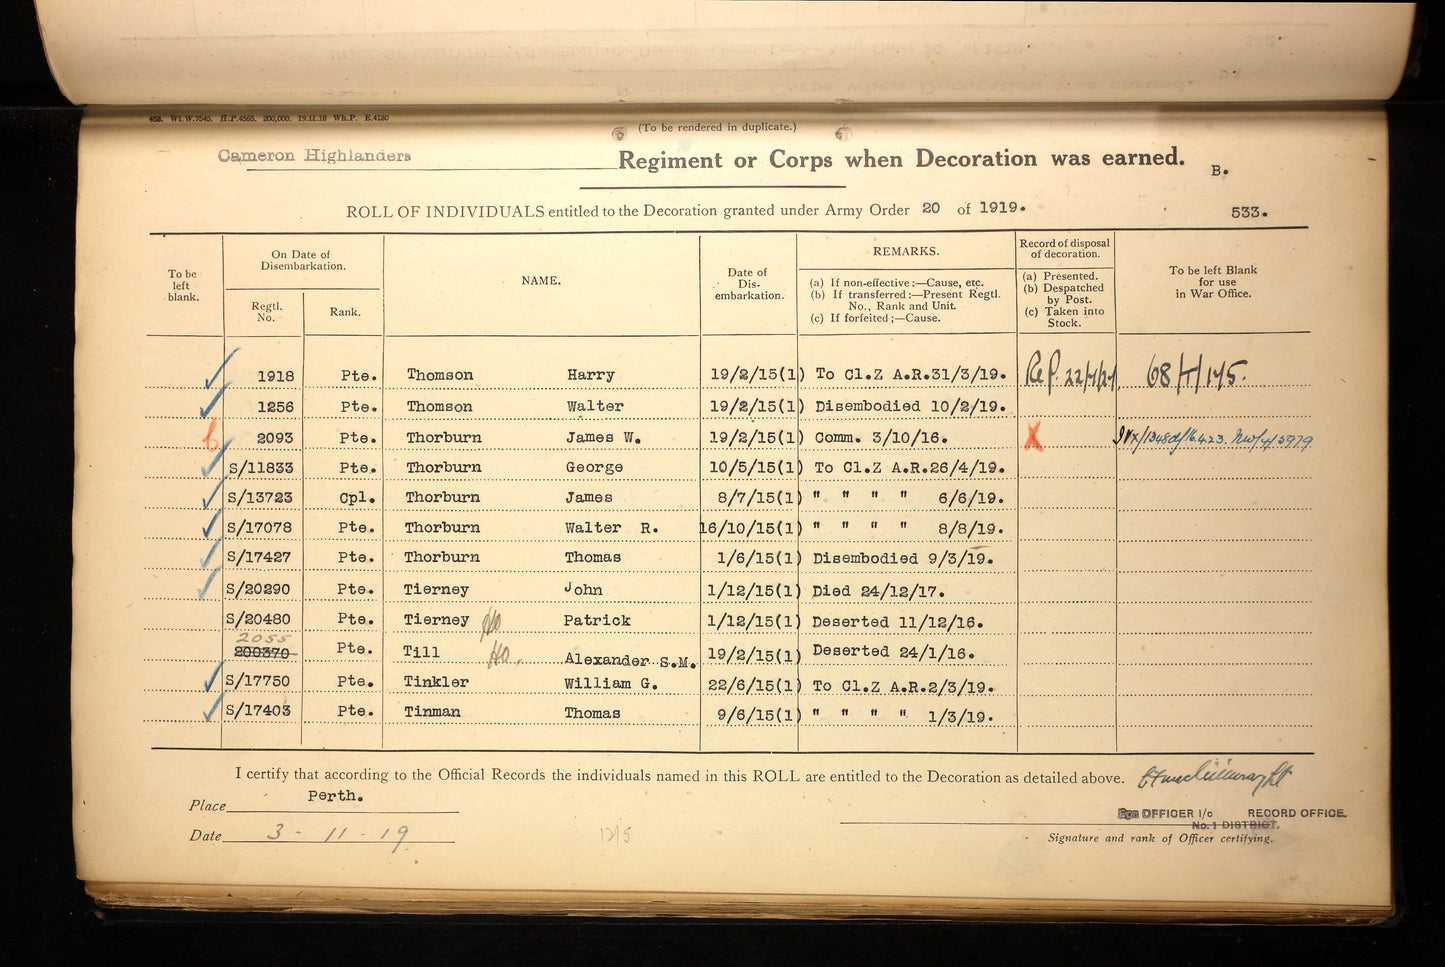 458. Wt.W.7545. H.P.4565. 200,000. 19.11.18 Wh.P. E.4180
(To be rendered in duplicate.)
Cameron Highlanders Regiment or Corps when Decoration was earned.
B.
ROLL OF INDIVIDUALS entitled to the Decoration granted under Army Order 20 of 1919.
533.
To be left blank. On Date of Disembarkation. NAME. Date of Dis-embarkation. REMARKS. Record of disposal of decoration. To be left Blank for use in War Office.
Regtl. No. Rank. (a) If non-effective:—Cause, etc. (a) Presented.
(b) If transferred:—Present Regtl. No., Rank and Unit. (b) Despatched by Post.
(c) If forfeited;—Cause. (c) Taken into Stock.
1918 Pte. Thomson Harry 19/2/15(1) To Cl.Z A.R.31/3/19. 68/T/145.
1256 Pte. Thomson Walter 19/2/15(1) Disembodied 10/2/19.
2093 Pte. Thorburn James W. 19/2/15(1) Comm. 3/10/16. X
S/11833 Pte. Thorburn George 10/5/15(1) To Cl.Z A.R.26/4/19.
S/13723 Cpl. Thorburn James 8/7/15(1) " " " " 6/6/19.
S/17078 Pte. Thorburn Walter R. 16/10/15(1) " " " " 8/8/19.
S/17427 Pte. Thorburn Thomas 1/6/15(1) Disembodied 9/3/19.
S/20290 Pte. Tierney John 1/12/15(1) Died 24/12/17.
S/20480 Pte. Tierney Patrick 1/12/15(1) Deserted 11/12/16.
2055
200370 Pte. Till Alexander S.M. 19/2/15(1) Deserted 24/1/16.
S/17750 Pte. Tinkler William G. 22/6/15(1) To Cl.Z A.R.2/3/19.
S/17403 Pte. Tinman Thomas 9/6/15(1) " " " " 1/3/19.
I certify that according to the Official Records the individuals named in this ROLL are entitled to the Decoration as detailed above.
Place Perth.
OFFICER I/c RECORD OFFICE.
No. 1 DISTRICT.
Date 3 - 11 - 19
Signature and rank of Officer certifying.